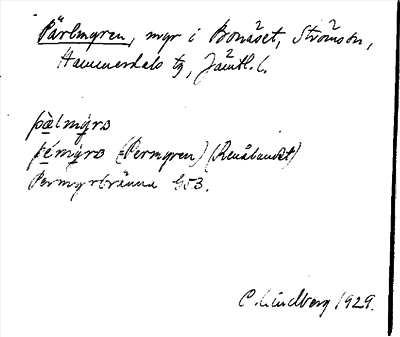 Pärlmyren, myr i Bonäset, Ströms sn,
Hammerdals tg, Jämtl. l.
pæ̀lmyrɷ
pémyrɷ (=Permyren) (Renålandet)
Permyrbränna G53.
C. Lindberg 1929.